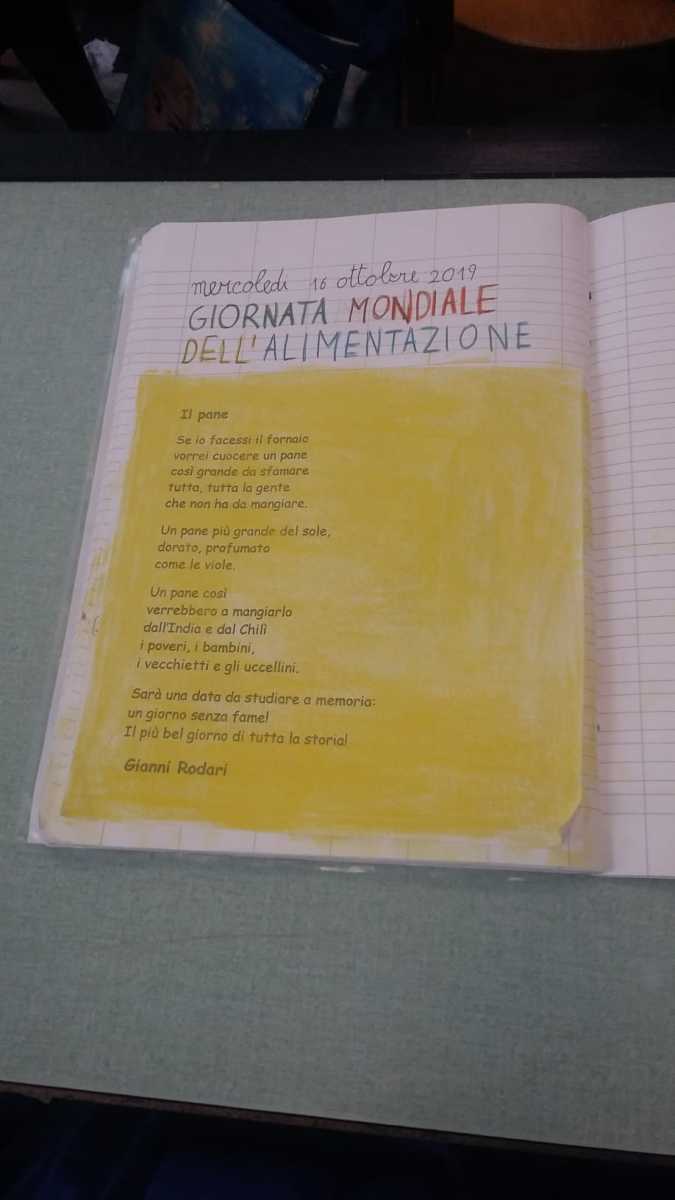 mercoledì 16 ottobre 2019
GIORNATA MONDIALE
DELL'ALIMENTAZIONE
Il pane
Se io facessi il fornaio
vorrei cuocere un pane
così grande da sfamare
tutta, tutta la gente
che non ha da mangiare.
Un pane più grande del sole,
dorato, profumato
come le viole.
Un pane così
verrebbero a mangiarlo
dall'India e dal Chilì
i poveri, i bambini,
i vecchietti e gli uccellini.
Sarà una data da studiare a memoria:
un giorno senza fame!
Il più bel giorno di tutta la storia!
Gianni Rodari